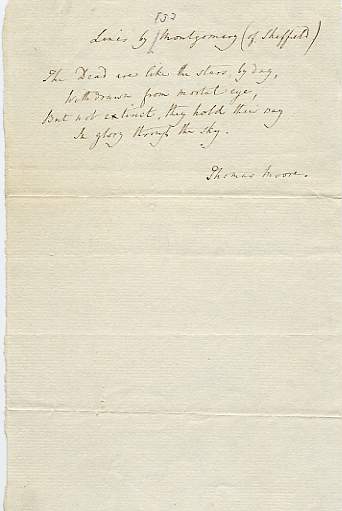 852
Lines by Montgomery (of Sheffield)
The Dead are like the stars, by day,
Withdrawn from mortal eye,
But not extinct, they hold their way
In glory through the sky.
Thomas Moore.